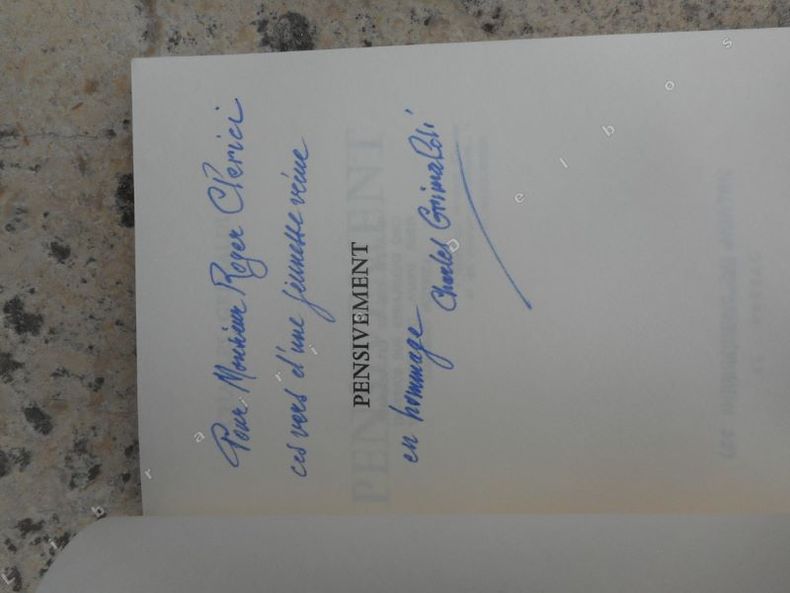 Pour Monsieur Roger Clerici
ces vers d'une jeunesse vécue
PENSIVEMENT
en hommage
Charles Grimaldi